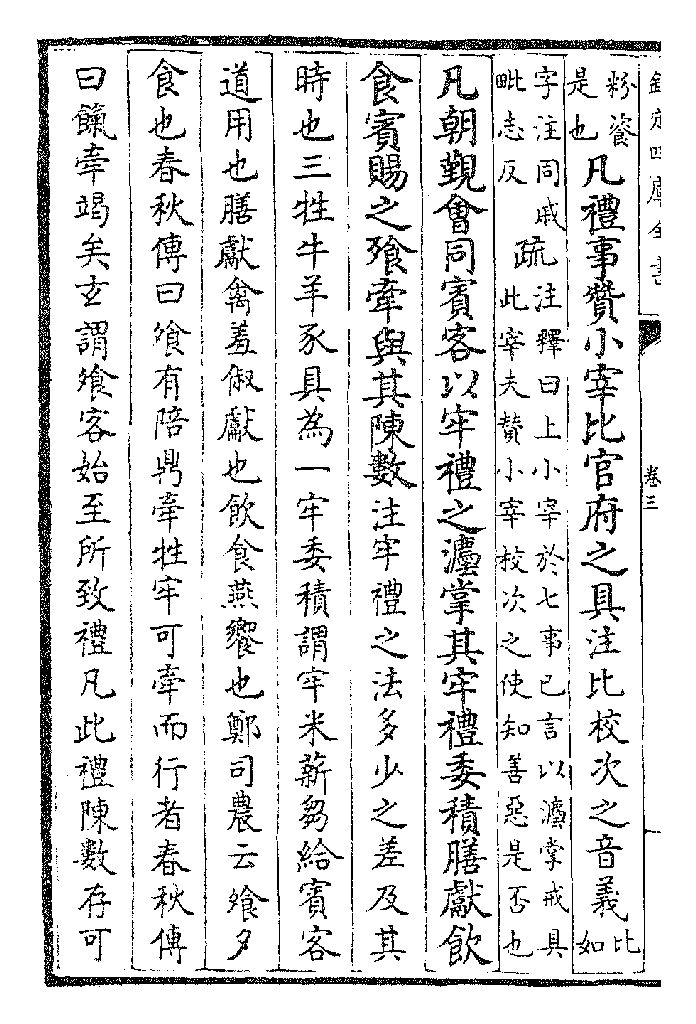 欽定四庫全書 卷三
粉餈
是也
凡禮事贊小宰比官府之具注比校次之音義比
如
字注同戚
毗志反
疏注釋曰上小宰於七事已言以灋掌戒具
此宰夫贊小宰校次之使知善惡是否也
凡朝覲會同賓客以牢禮之灋掌其牢禮委積膳獻飲
食賓賜之飱牽與其陳數注牢禮之法多少之差及其
時也三牲牛羊豕具為一牢委積謂牢米薪芻給賓客
道用也膳獻禽羞俶獻也飲食燕饗也鄭司農云飱夕
食也春秋傳曰飱有陪鼎牽牲牢可牽而行者春秋傳
曰餼牽竭矣玄謂飱客始至所致禮凡此禮陳數存可